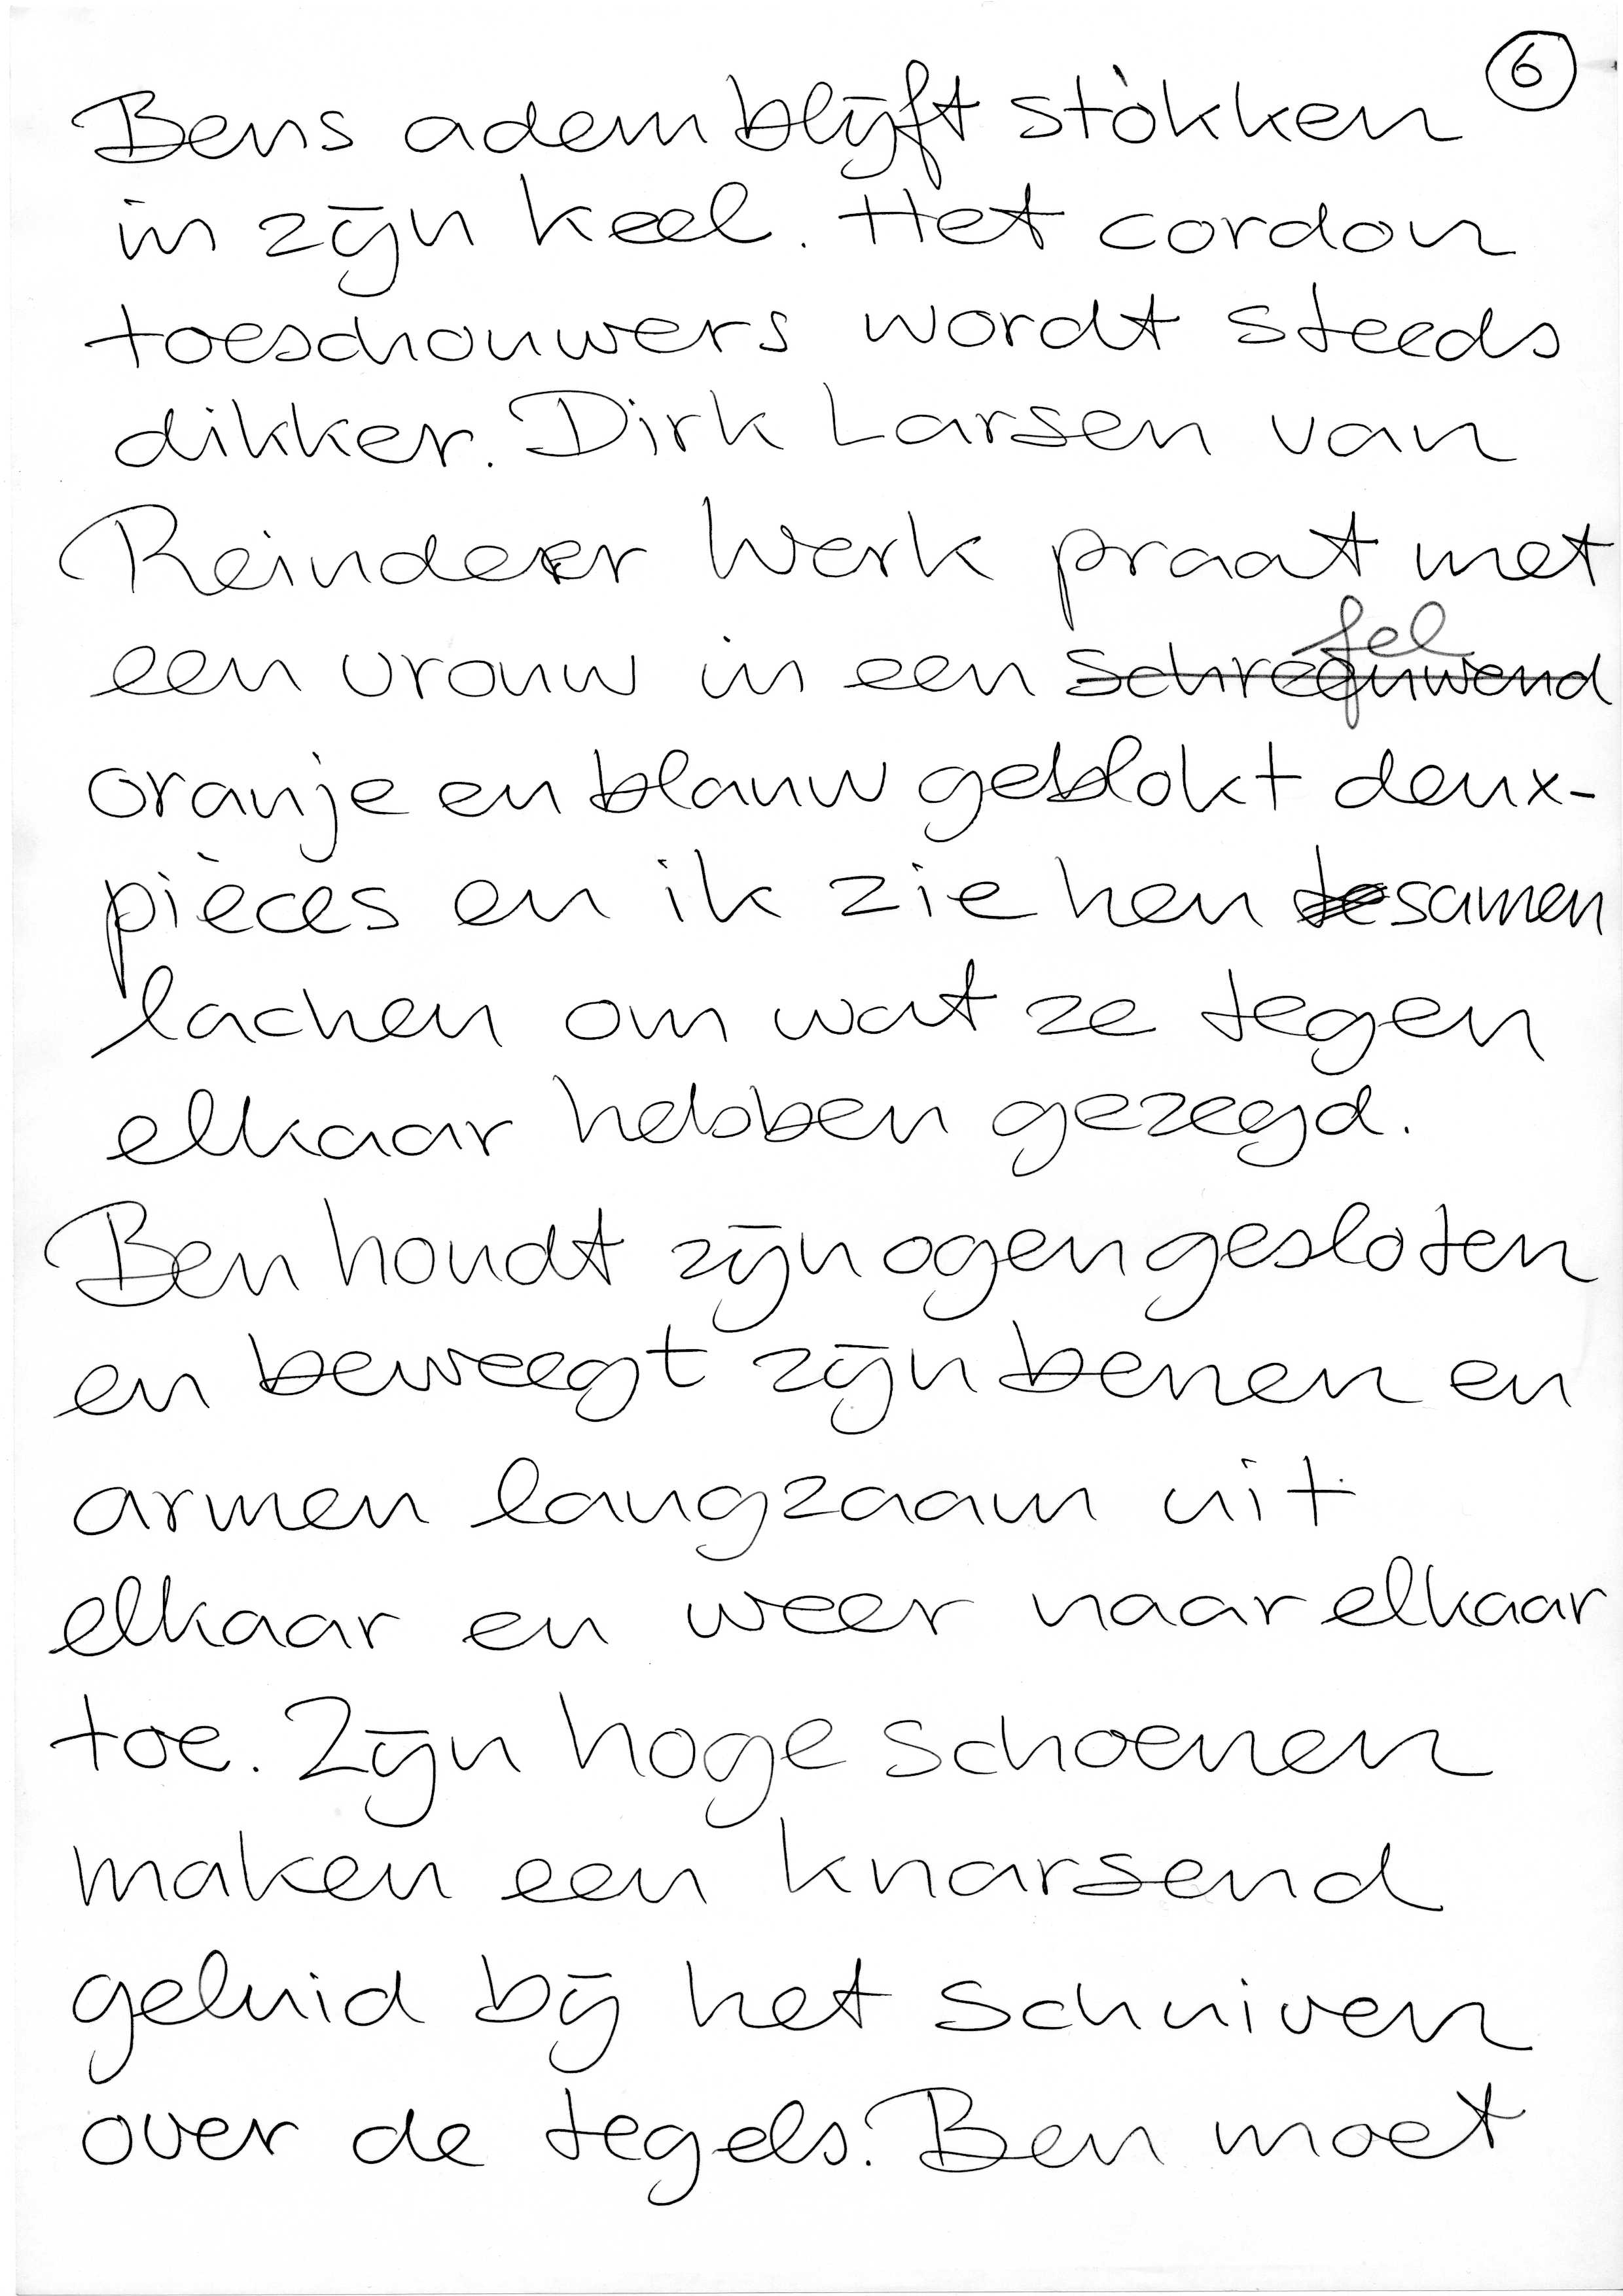 6
Bens adem blijft stokken
in zijn keel. Het cordon
toeschouwers wordt steeds
dikker. Dirk Larsen van
Reindeer Werk praat met
fel
een vrouw in een schreeuwend
oranje en blauw geblokt deux-
pièces en ik zie hen te samen
lachen om wat ze tegen
elkaar hebben gezegd.
Ben houdt zijn ogen gesloten
en beweegt zijn benen en
armen langzaam uit
elkaar en weer naar elkaar
toe. Zijn hoge schoenen
maken een knarsend
geluid bij het schuiven
over de tegels. Ben moet